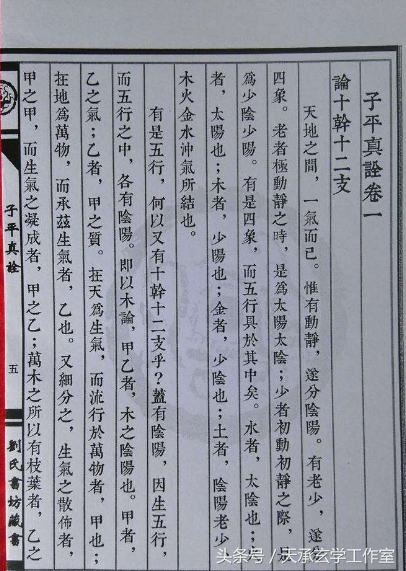 子平真詮卷一
論十幹十二支
天地之間，一氣而已。惟有動靜，遂分陰陽。有老少，遂分
四象。老者極動靜之時，是爲太陽太陰；少者初動初靜之際，是
爲少陰少陽。有是四象，而五行具於其中矣。水者，太陰也；火
者，太陽也；木者，少陽也；金者，少陰也；土者，陰陽老少
木火金水沖氣所結也。
有是五行，何以又有十幹十二支乎？蓋有陰陽，因生五行，
而五行之中，各有陰陽。即以木論，甲乙者，木之陰陽也。甲者，
乙之氣；乙者，甲之質。在天爲生氣，而流行於萬物者，甲也；
在地爲萬物，而承茲生氣者，乙也。又細分之，生氣之散佈者，
甲之甲，而生氣之凝成者，甲之乙；萬木之所以有枝葉者，乙之
子平真詮
五
劉氏書坊藏書
头条号／天承玄学工作室